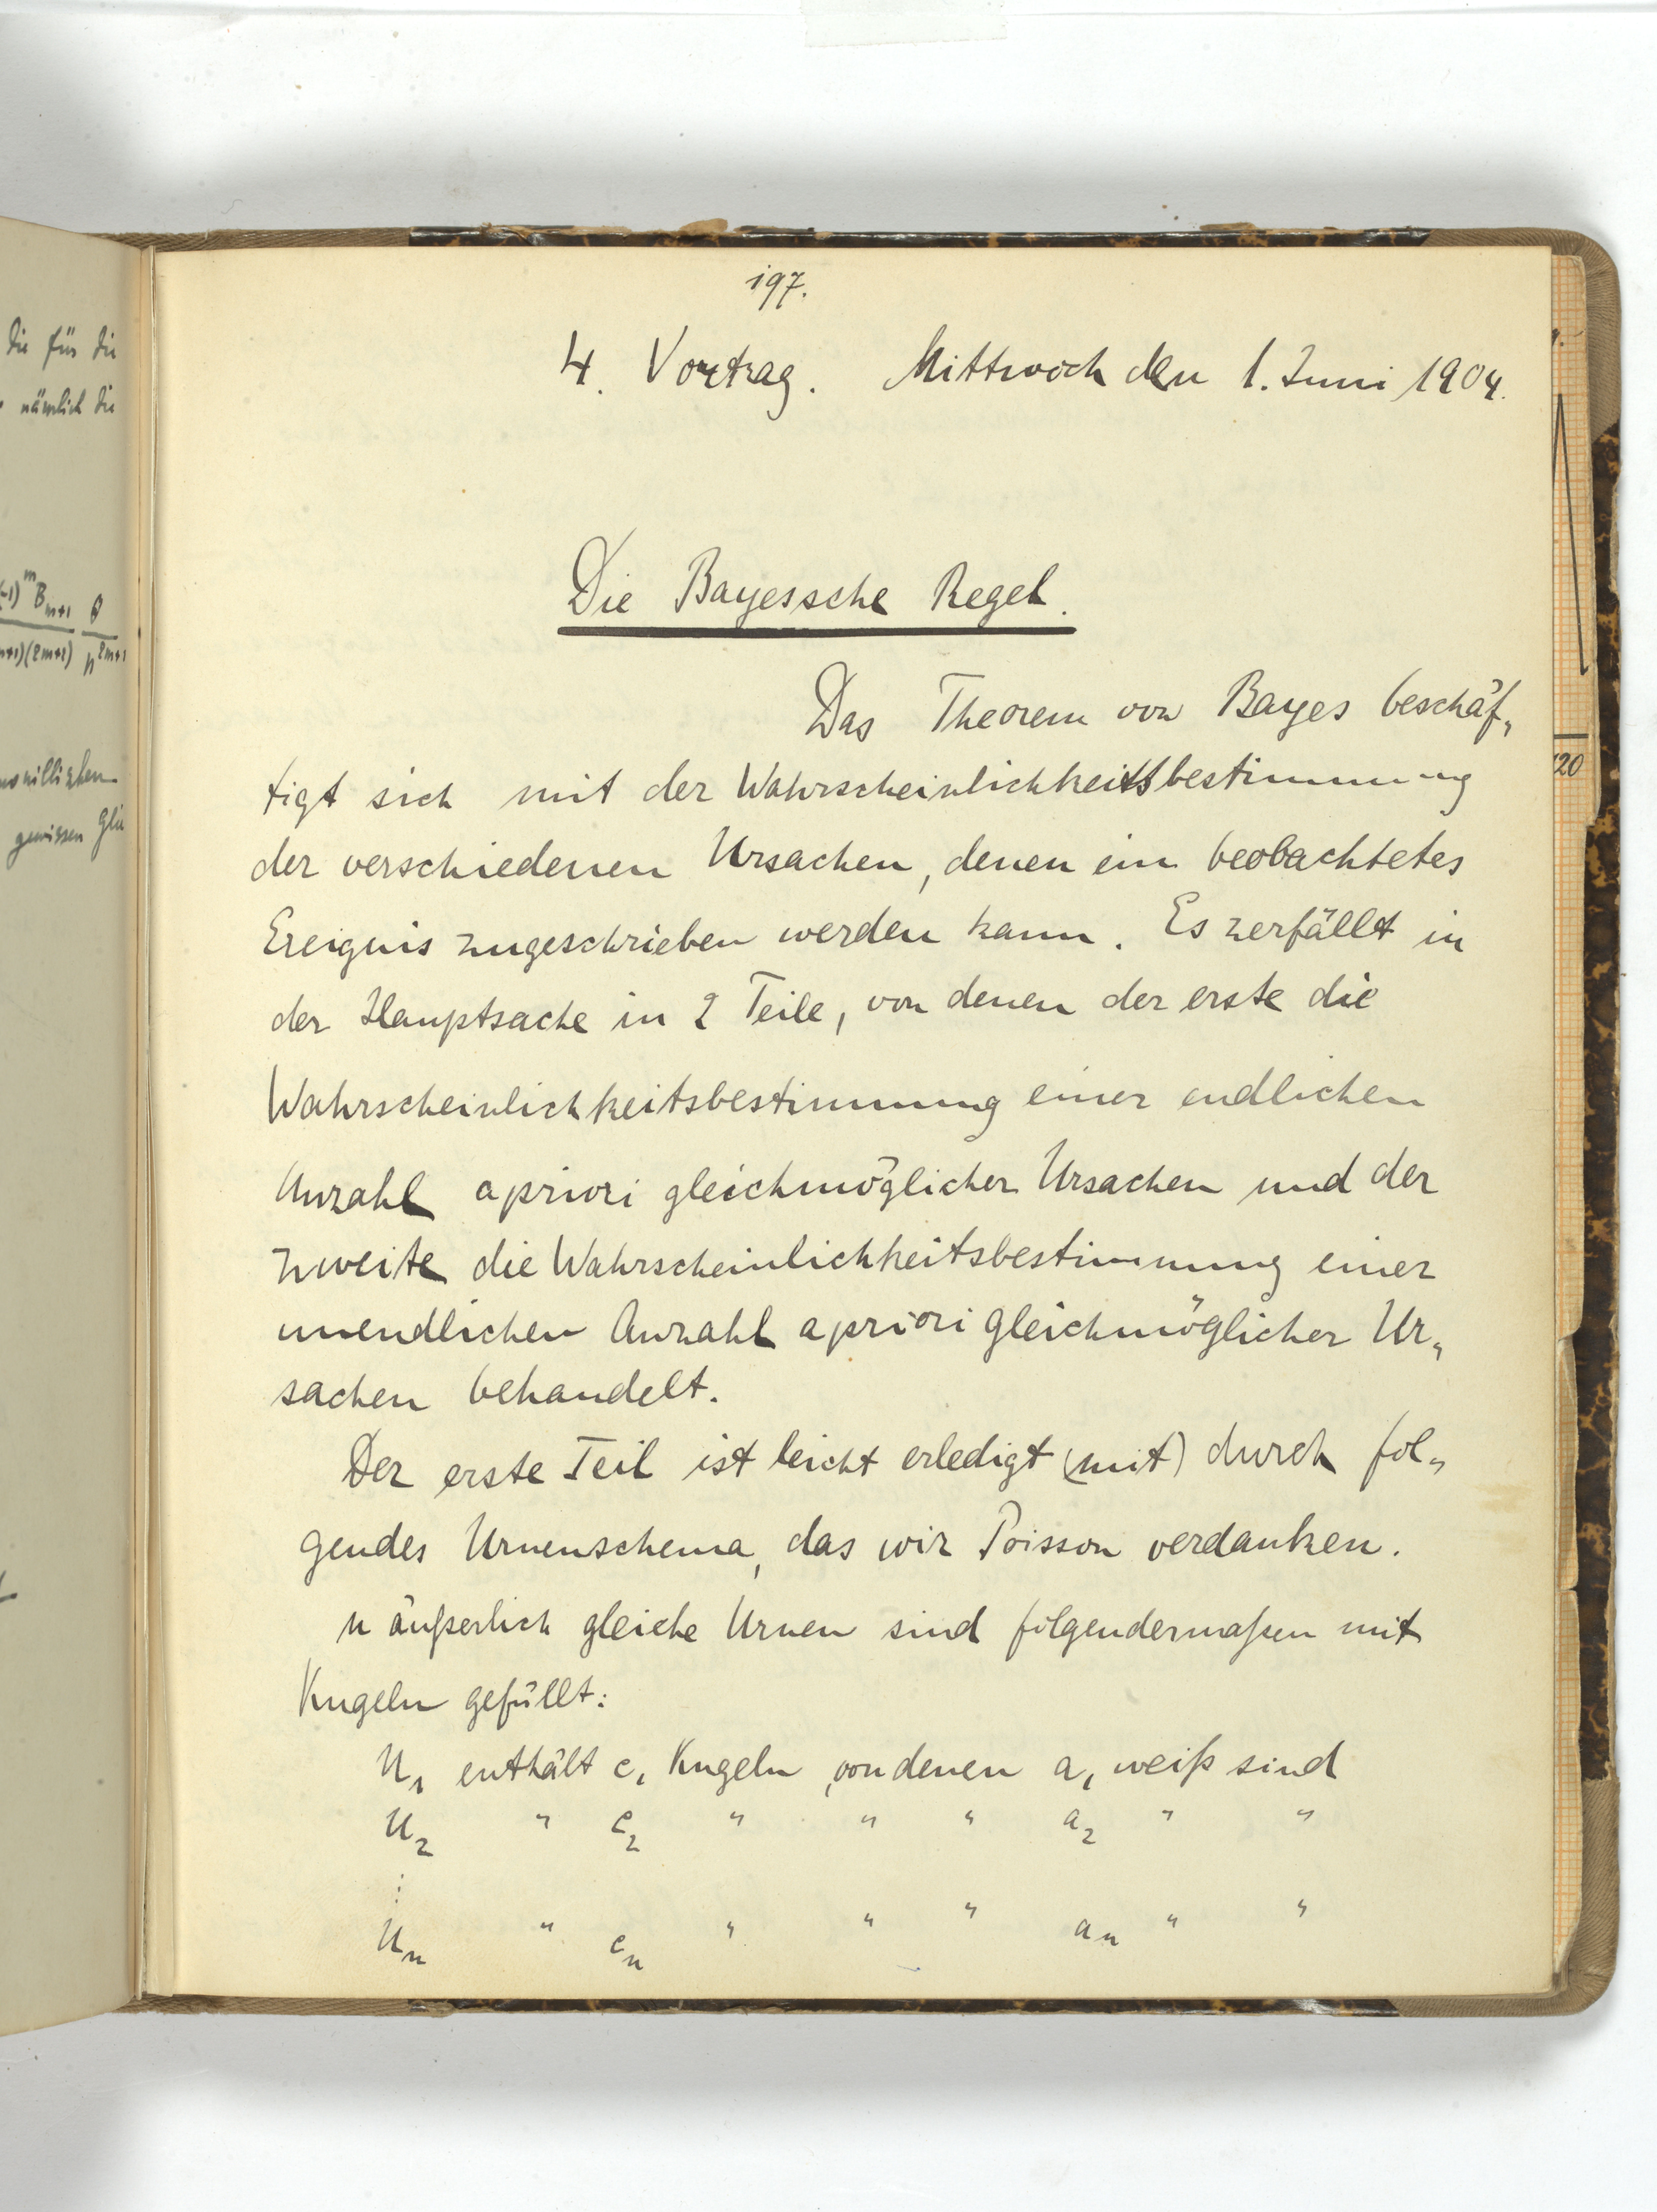 die für die
nämlich die
(-1)^m B_{m+1} θ
+1)(2m+2) n^{2m+1}
gewissen Glie
197.
4. Vortrag. Mittwoch den 1. Juni 1904.
Die Bayessche Regel.
Das Theorem von Bayes beschäf„
tigt sich mit der Wahrscheinlichkeitsbestimmung
der verschiedenen Ursachen, denen ein beobachtetes
Ereignis zugeschrieben werden kann. Es zerfällt in
der Hauptsache in 2 Teile, von denen der erste die
Wahrscheinlichkeitsbestimmung einer endlichen
Anzahl apriori gleichmöglicher Ursachen und der
zweite die Wahrscheinlichkeitsbestimmung einer
unendlichen Anzahl apriori gleichmöglicher Ur„
sachen behandelt.
Der erste Teil ist leicht erledigt (mit) durch fol„
gendes Urnenschema, das wir Poisson verdanken.
n äußerlich gleiche Urnen sind folgendermaßen mit
Kugeln gefüllt:
U₁ enthält c₁ Kugeln, von denen a₁ weiß sind
U₂ " c₂ " " " a₂ " "
⋮
Uₙ " cₙ " " " aₙ " "
120